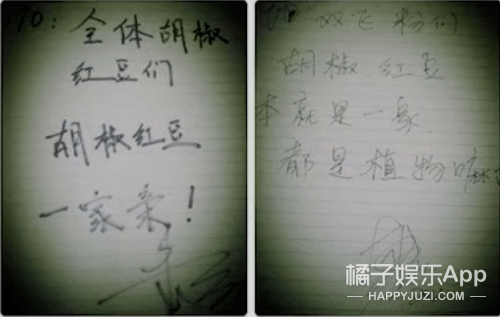 TO: 全体胡椒
红豆们
胡椒红豆
一家亲!
双飞粉们
胡椒 红豆
本就是一家
都是植物嘛
橘子娱乐App
—HAPPYJUZI.COM—